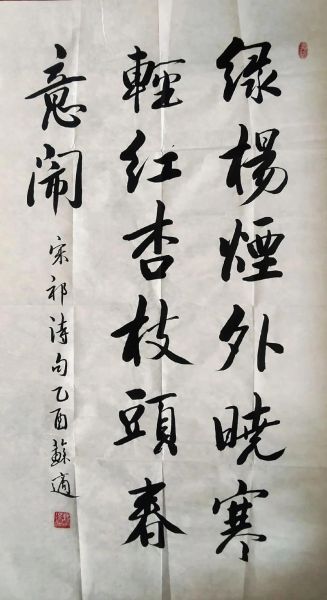 绿楊煙外曉寒
輕红杏枝頭春
意闹
宋祁诗句乙酉蘇適